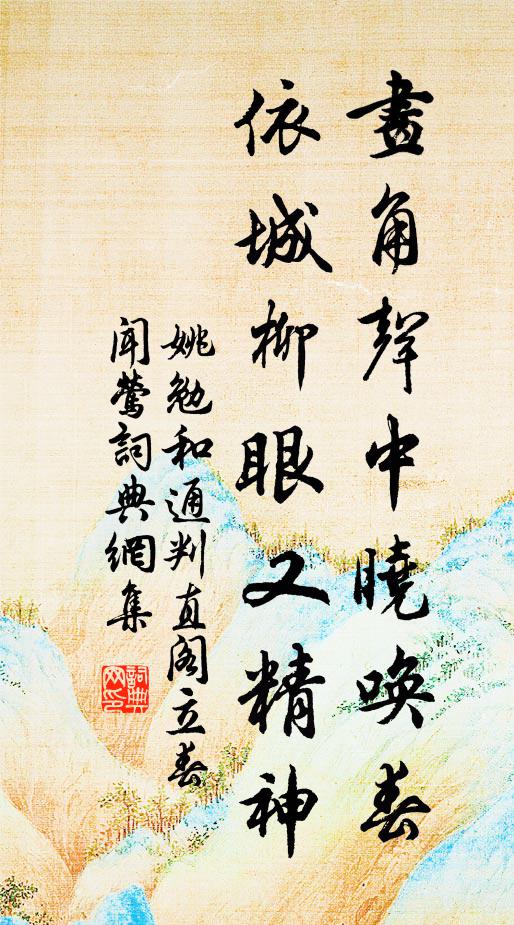 畫角聲中曉喚春
依城柳眼又精神
姚勉和通判直閣立春
聞鶯詞典網集
詞典